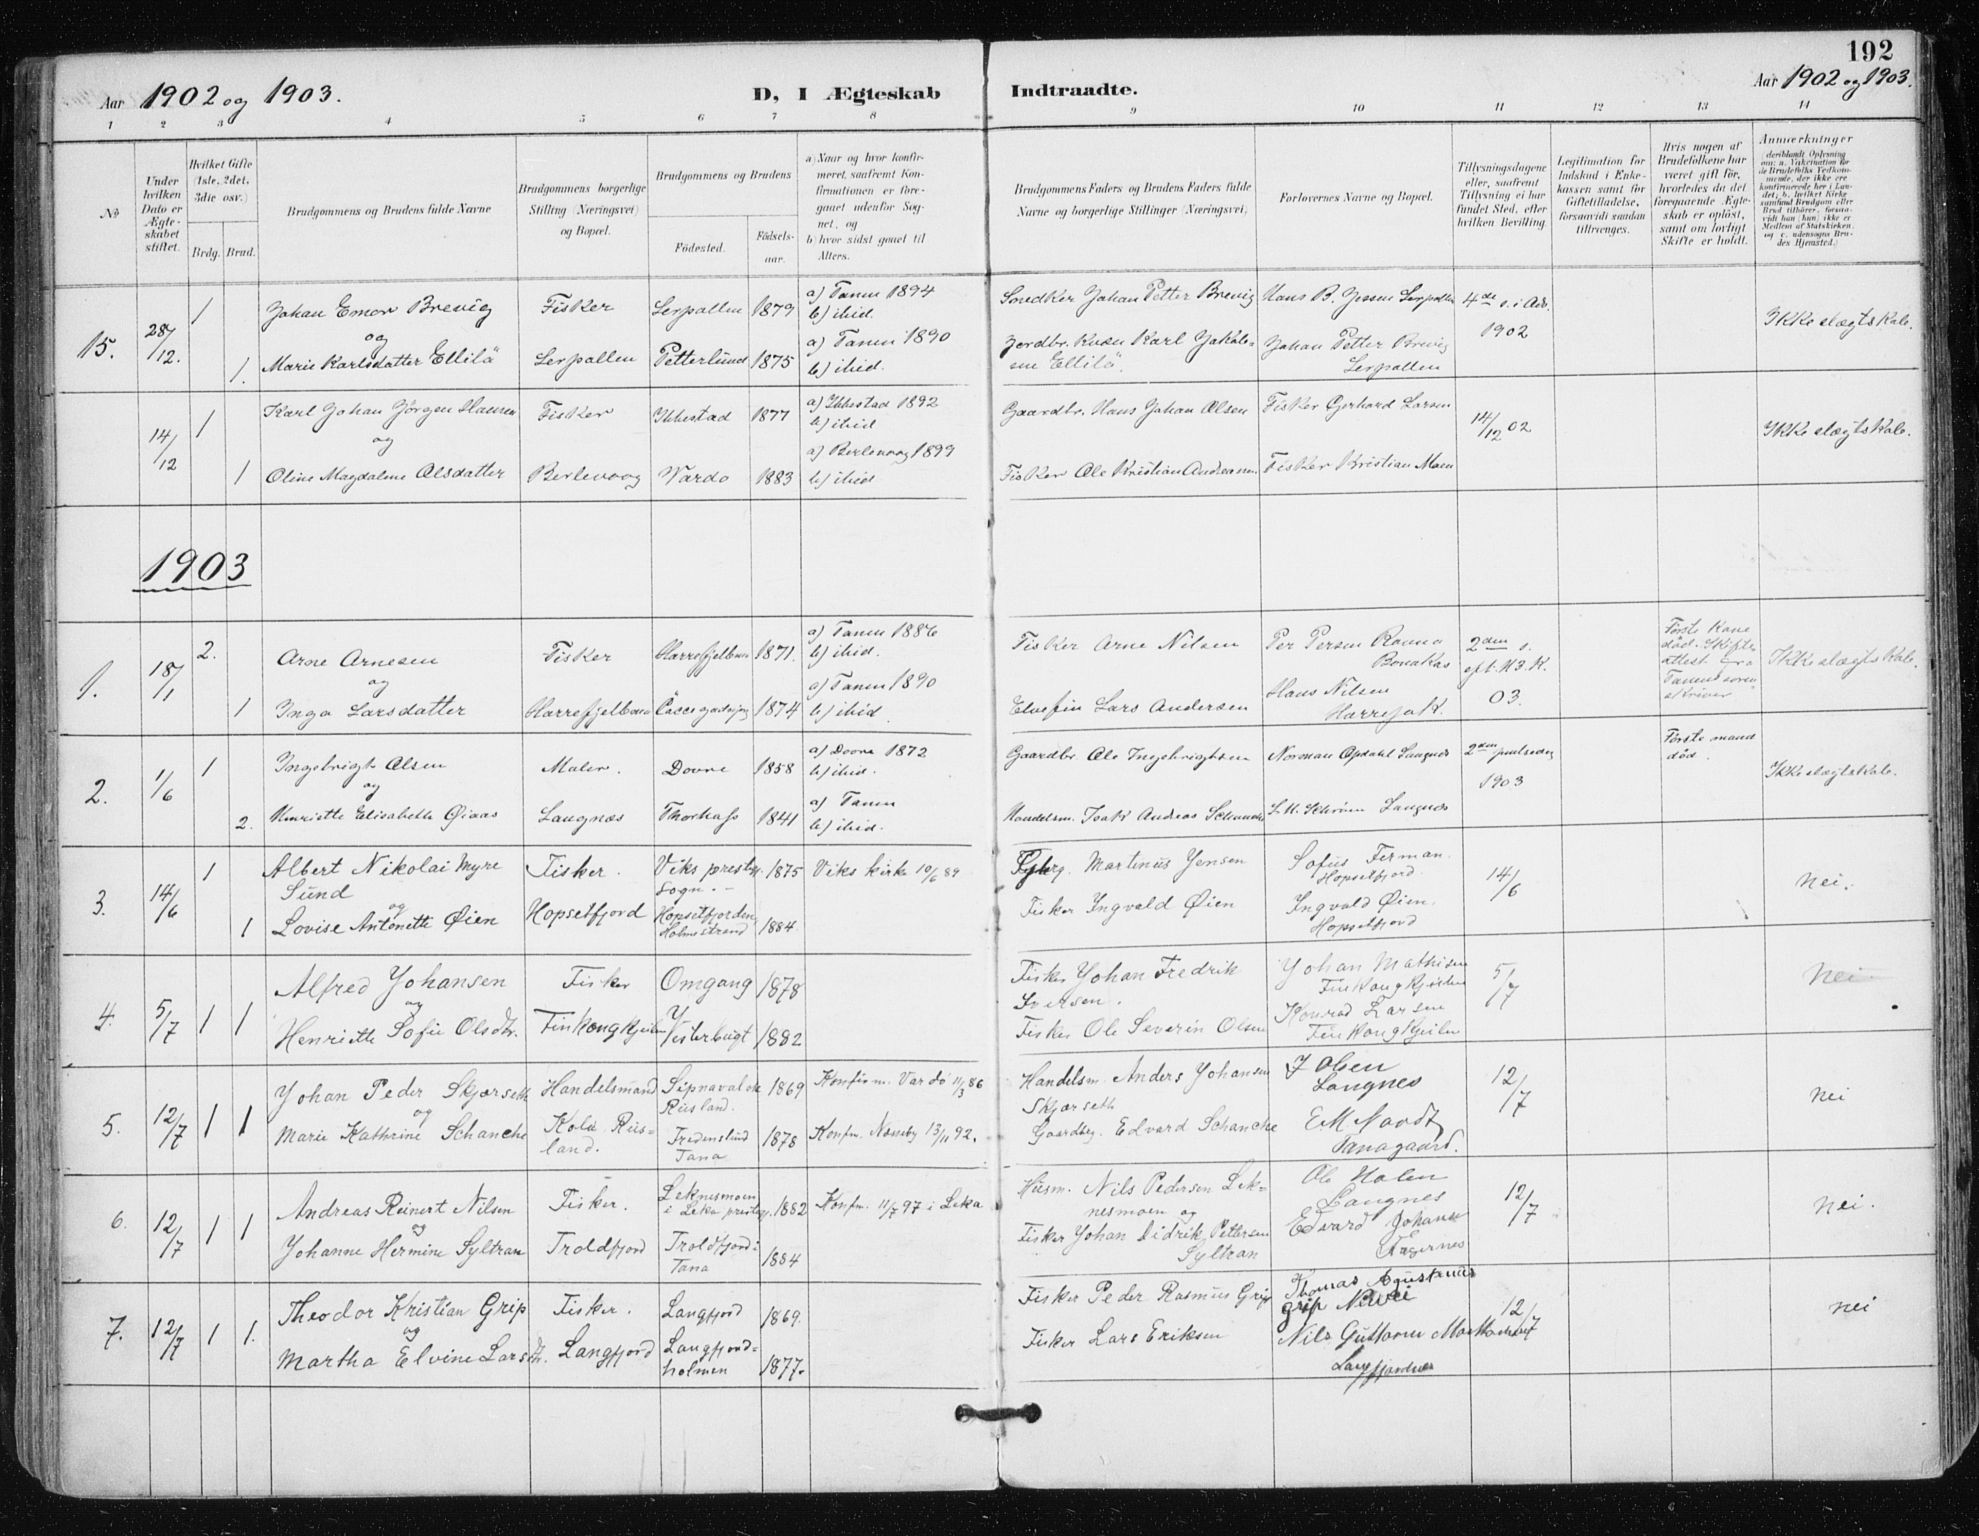 192
Aar 1902 og 1903.
D, I Ægteskab
Indtraadte.
Aar 1902 og 1903.
1 2 3 4 5 6 7 8 9 10 11 12 13 14
No
Under hvilken Dato er Ægteskabet stiftet.
Hvilket Gifte (1ste, 2det, 3die osv.)
Brdg. Brud.
Brudgommens og Brudens fulde Navne
Brudgommens borgerlige Stilling (Næringsvei) og Bopæl.
Brudgommens og Brudens
Fødested.
Fødsels-aar.
a) Naar og hvor konfir-
meret, saafremt Kon-
firmationen er fore-
gaaet udenfor Sog-
net, og
b) hvor sidst gaaet til
Alters.
Brudgommens Faders og Brudens Faders fulde
Navne og borgerlige Stillinger (Næringsvei)
Forlovernes Navne og Bopæl.
Tillysningsdagene
eller, saafremt
Tillysning ei har
fundet Sted, efter
hvilken Bevilling.
Legitimation for
Indskud i Enke-
kassen samt for
Giftetilladelse,
forsaavidt saadan
tiltrænges.
Hvis nogen af
Brudefolkene har
været gift før,
hvorledes da det
foregaaende Ægte-
skab er opløst,
samt om lovligt
Skifte er holdt.
Anmærkninger
deriblandt Oplysning
om: a. Vakcination for
de Brudefolks Vedkom-
mende, der ikke ere
konfirmerede her i Lan-
det; b. hvilket Kirke-
samfund Brudgom eller
Brud tilhører, forsaa-
vidt han (hun) ikke er
Medlem af Statskirken,
og c. udensogns Bru-
des Hjemsted.)
15. 28/12. 1 Johan Emor Brevig Fisker Lerpollen 1879 a) Tanen 1894 b) ibid.
Snedker Johan Petter Brevig Hans B. Lerpollen 4de s. i Adv. 1902 Ikke slægtskab.
og
1. Marie Karlsdatter Ellilä Lerpollen Petterlund 1875 a) Tanen 1890 b) ibid.
Jordbr. Karl Ellilä. Johan Petter Brevig Lerpollen
14/12 1 Karl Johan Jörgen Hansen Fisker Ibbestad 1877 a) Ibbestad 1892 b) ibid
Gaardbr. Hans Johan Olsen Fisker Gerhard Larsen 14/12 02 Ikke slægtskab.
og
1 Oline Magdalene Olsdatter Berlevaag Vardø 1883 a) Berlevaag 1899 b) ibid
Fisker Ole Kristian Andersen Fisker Kristian Moen
1903
1. 18/1 2. Arne Arnesen Fisker Harrefjelbun 1871. a) Tanen 1886 b) ibid.
Fisker Arne Nilsen Per Persen Rauna Bonakas 2den s. eft. H3K. 03. Første Kone død. Skifteattest fra Tanens sorenskriver Ikke slægtskab.
og
1 Inga Larsdatter Harrefjelbun 1874 a) Tanen 1890 b) ibid.
Lars Andersen Hans Nilsen
2. 1/6 1 Ingebrigt Olsen Maler. Dovre 1858 a) Dovre 1872 b) ibid.
Gaardbr Ole Ingebrigtsen Norman Opdahl Langnæs 2den 1903 Første mand død. Ikke slægtskab.
og
2. Henriette Elisabeth Langnæs 1841 a) Tanen b) ibid.
Handelsm. Isak Andreas Langnæs
3. 14/6 1 Albert Nikolai Myre Fisker. Viks prestg. 1875 Viks kirke 10/6 89
Sund sogn. –
Martinus Jensen Sofus Ferman. Hopsetfjord. 14/6 nei.
og
1 Lovise Antonette Øien Hopsetfjord Hopsetfjorden Holmestrand 1884.
Fisker Ingvald Øien Ingvald Øien. Hopsetfjord
4. 5/7 1 1 Alfred Johansen Fisker Omgang 1878
Fisker Johan Fredrik Iversen. Johan Mathisen Finkongkjeilen 5/7 nei
og
Henriette Sofie Olsdtr. Finkongkjeilen Vesterbugt 1882
Fisker Ole Severin Olsen Konrad Larsen Finkongkjeilen
5. 12/7 1 1 Johan Peder Skjærseth Handelsmand Sipnavalok Rusland. 1869 Konfirm. Vardö 11/3 86
Handelsm. Anders Johansen Skjærseth J Olsen Langnes 12/7 nei
og
Marie Kathrine Schanche Kola Rus-land. Fredenslund Tana 1878 Konfm. Næsseby 13/11 92.
Gaardbrg. Edvard Schanche Tanagaard.
6. 12/7 1 1 Andreas Reinert Nilsen Fisker. Leknesmoen i Leka prestg. 1882 Konfm. 11/7 97 i Leka
Husm. Nils Pedersen Lek-nesmoen og Ole Holen Langnes 12/7 nei.
og
Johanne Hermine Syltran Troldfjord Troldfjord i Tana 1884
Fisker Johan Didrik Pettersen Syltran Edvard Johansen
7. 12/7 1 1. Theodor Kristian Grip Fisker. Langfjord 1869.
Fisker Peder Rasmus Grip Thomas Agustinus Grip 12/7 nei
og
Martha Elvine Larsdtr. Langfjord Langfjord-holmen 1877.
Fisker Lars Eriksen Nils Guttorm Langfjordnes